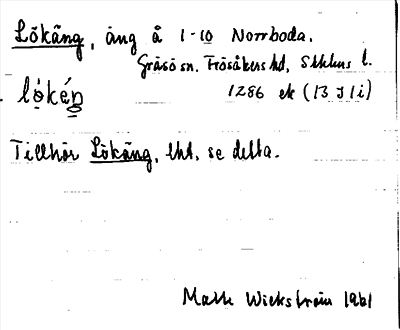 Lökäng, äng å 1-10 Norrboda.
Gräsö sn. Frösåkers hd, Sthlms l.
lókén 1286 ek (13 J 1i)
Tillhör Lökäng, lht, se detta.
Mats Wickström 1961